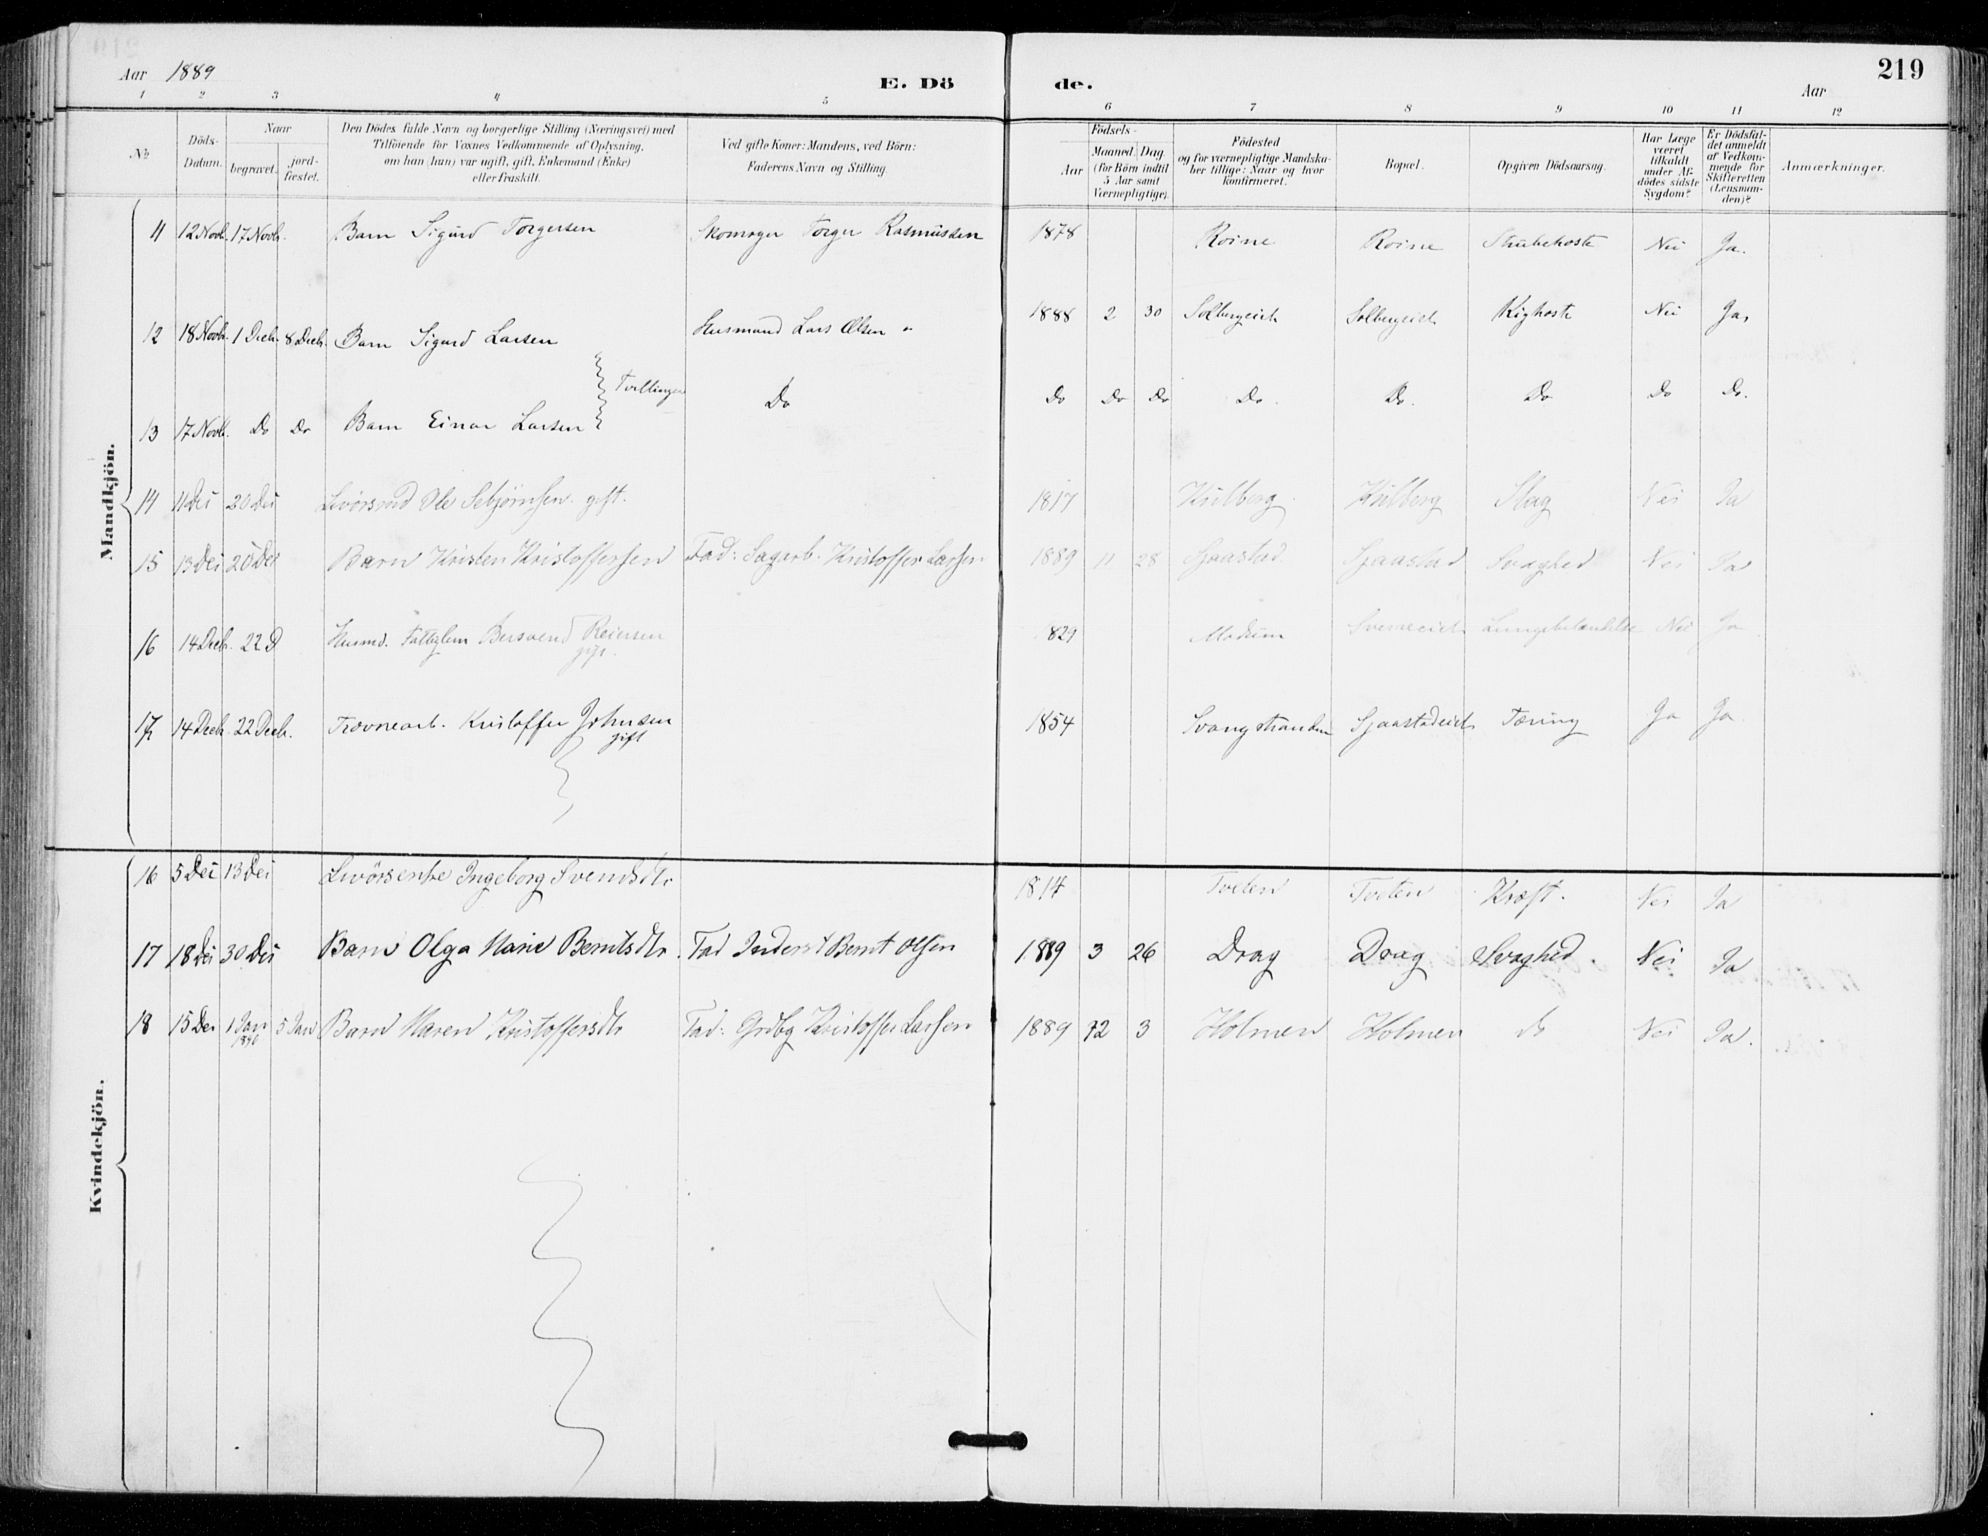 219
Aar 1889
E. Dö de.
Aar
1 2 3 4 5 6 7 8 9 10 11 12
No
Döds-Datum.
Naar
begravet.
jord-fæstet.
Den Dödes fulde Navn og borgerlige Stilling (Næringsvei) med
Tilföiende for Voxnes Vedkommende af Oplysning,
om han (hun) var ugift, gift, Enkemand (Enke)
eller fraskilt.
Ved gifte Koner: Mandens, ved Börn:
Faderens Navn og Stilling.
Födsels-
Aar
Maaned. Dag.
(for Börn indtil
5 Aar samt
Værnepligtige).
Födested
og for værnepligtige Mandska-
ber tillige: Naar og hvor
konfirmeret.
Bopæl.
Opgiven Dödsaarsag.
Har Læge
været
tilkaldt
under Af-
dödes sidste
Sygdom?
Er Dödsfal-
det anmeldt
af Vedkom-
mende for
Skifteretten
(Lensman-
den)?
Anmærkninger.
Mandkjön.
11 12 Novb. 17 Novb. Barn Sigurd Torgersen Skomager Torger Rasmussen 1878 Roine Roine Strubehoste Nei Ja.
12 18 Novb. 1 Decb. 8 Decb. Barn Sigurd Larsen Husmand Lars Olsen 1888 2 30 Solbergeiet Solbergeiet Kighoste Nei Ja,
Tvillinger
13 17 Novb. Do Do Barn Einar Larsen Do Do Do Do Do. Do. Do Do Do.
14 11 Dei 20 Dei Ole gift. 1817 Killberg Killberg Slag Nei Ja
15 13 Dei 20 Dei Barn Kristen Kristoffersen Fad: Sagarb. Kristoffer Larsen 1889 11 28 Sjaastad Sjaastad Svaghed Nei Ja
16 14 Decb. 22 D Husmd. Reiersen 1829 Modum Lungebetændelse Nei Ja
gift.
17 14 Decb. 22 Decb. Kristoffer Johnsen 1854 Svangstranden Sjaastadeiet Tæring Ja Ja
gift
Kvindekjön.
16 5 Dei 13 Dei Ingeborg Svendsdtr 1814 Tveten Tveten Kræft. Nei Ja
17 18 Dei 30 Dei Barn Olga Marie Berntsdtr. Fad Inderst Bernt Olsen 1889 3 26 Drag Drag Svaghed. Nei Ja
18 15 Dei 1 Jan 1890 5 Jan Barn Maren Kristoffersdtr Fad: Grdbg Kristoffer Larsen 1889 12 3 Holmen Holmen do Nei Ja.